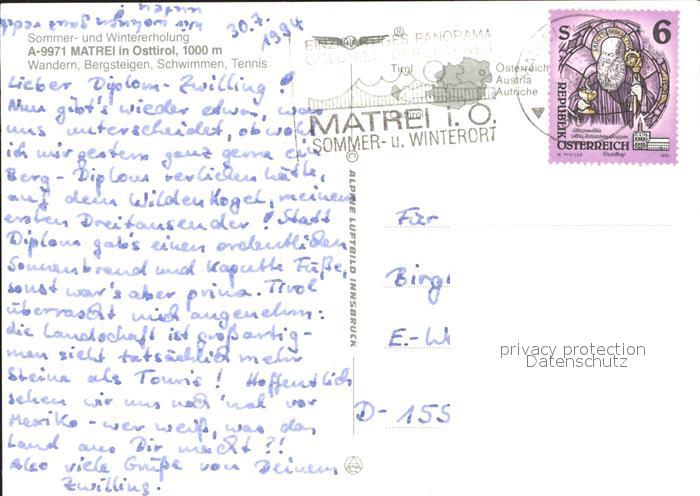 30.7.
1994
Sommer- und Wintererholung
A-9971 MATREI in Osttirol, 1000 m
Wandern, Bergsteigen, Schwimmen, Tennis
Lieber Diplom-Zwilling!
Nun gibt's wieder etwas, was
uns unterscheidet, obwohl
ich mir gestern ganz gerne ein
Berg-Diplom verliehen hätte,
auf dem Wildenkogel, meinem
ersten Dreitausender! Statt
Diplom gab's einen ordentlichen
Sonnenbrand und kaputte Füße,
sonst war's aber prima. Tirol
überrascht mich angenehm:
die Landschaft ist großartig -
man sieht tatsächlich mehr
Steine als Touris! Hoffentlich
sehen wir uns noch 'nal vor
Mexiko - wer weiß, was das
Land aus Dir macht?!
Also viele Grüße von Deinem
Zwilling.
© ALPINE LUFTBILD INNSBRUCK
PANORAMA
Tirol
Österreich
Austria
Autriche
MATREI i. O.
SOMMER- u. WINTERORT
S 6
REPUBLIK
ÖSTERREICH
Für
Birgi
E.-W
D- 155
privacy protection
Datenschutz